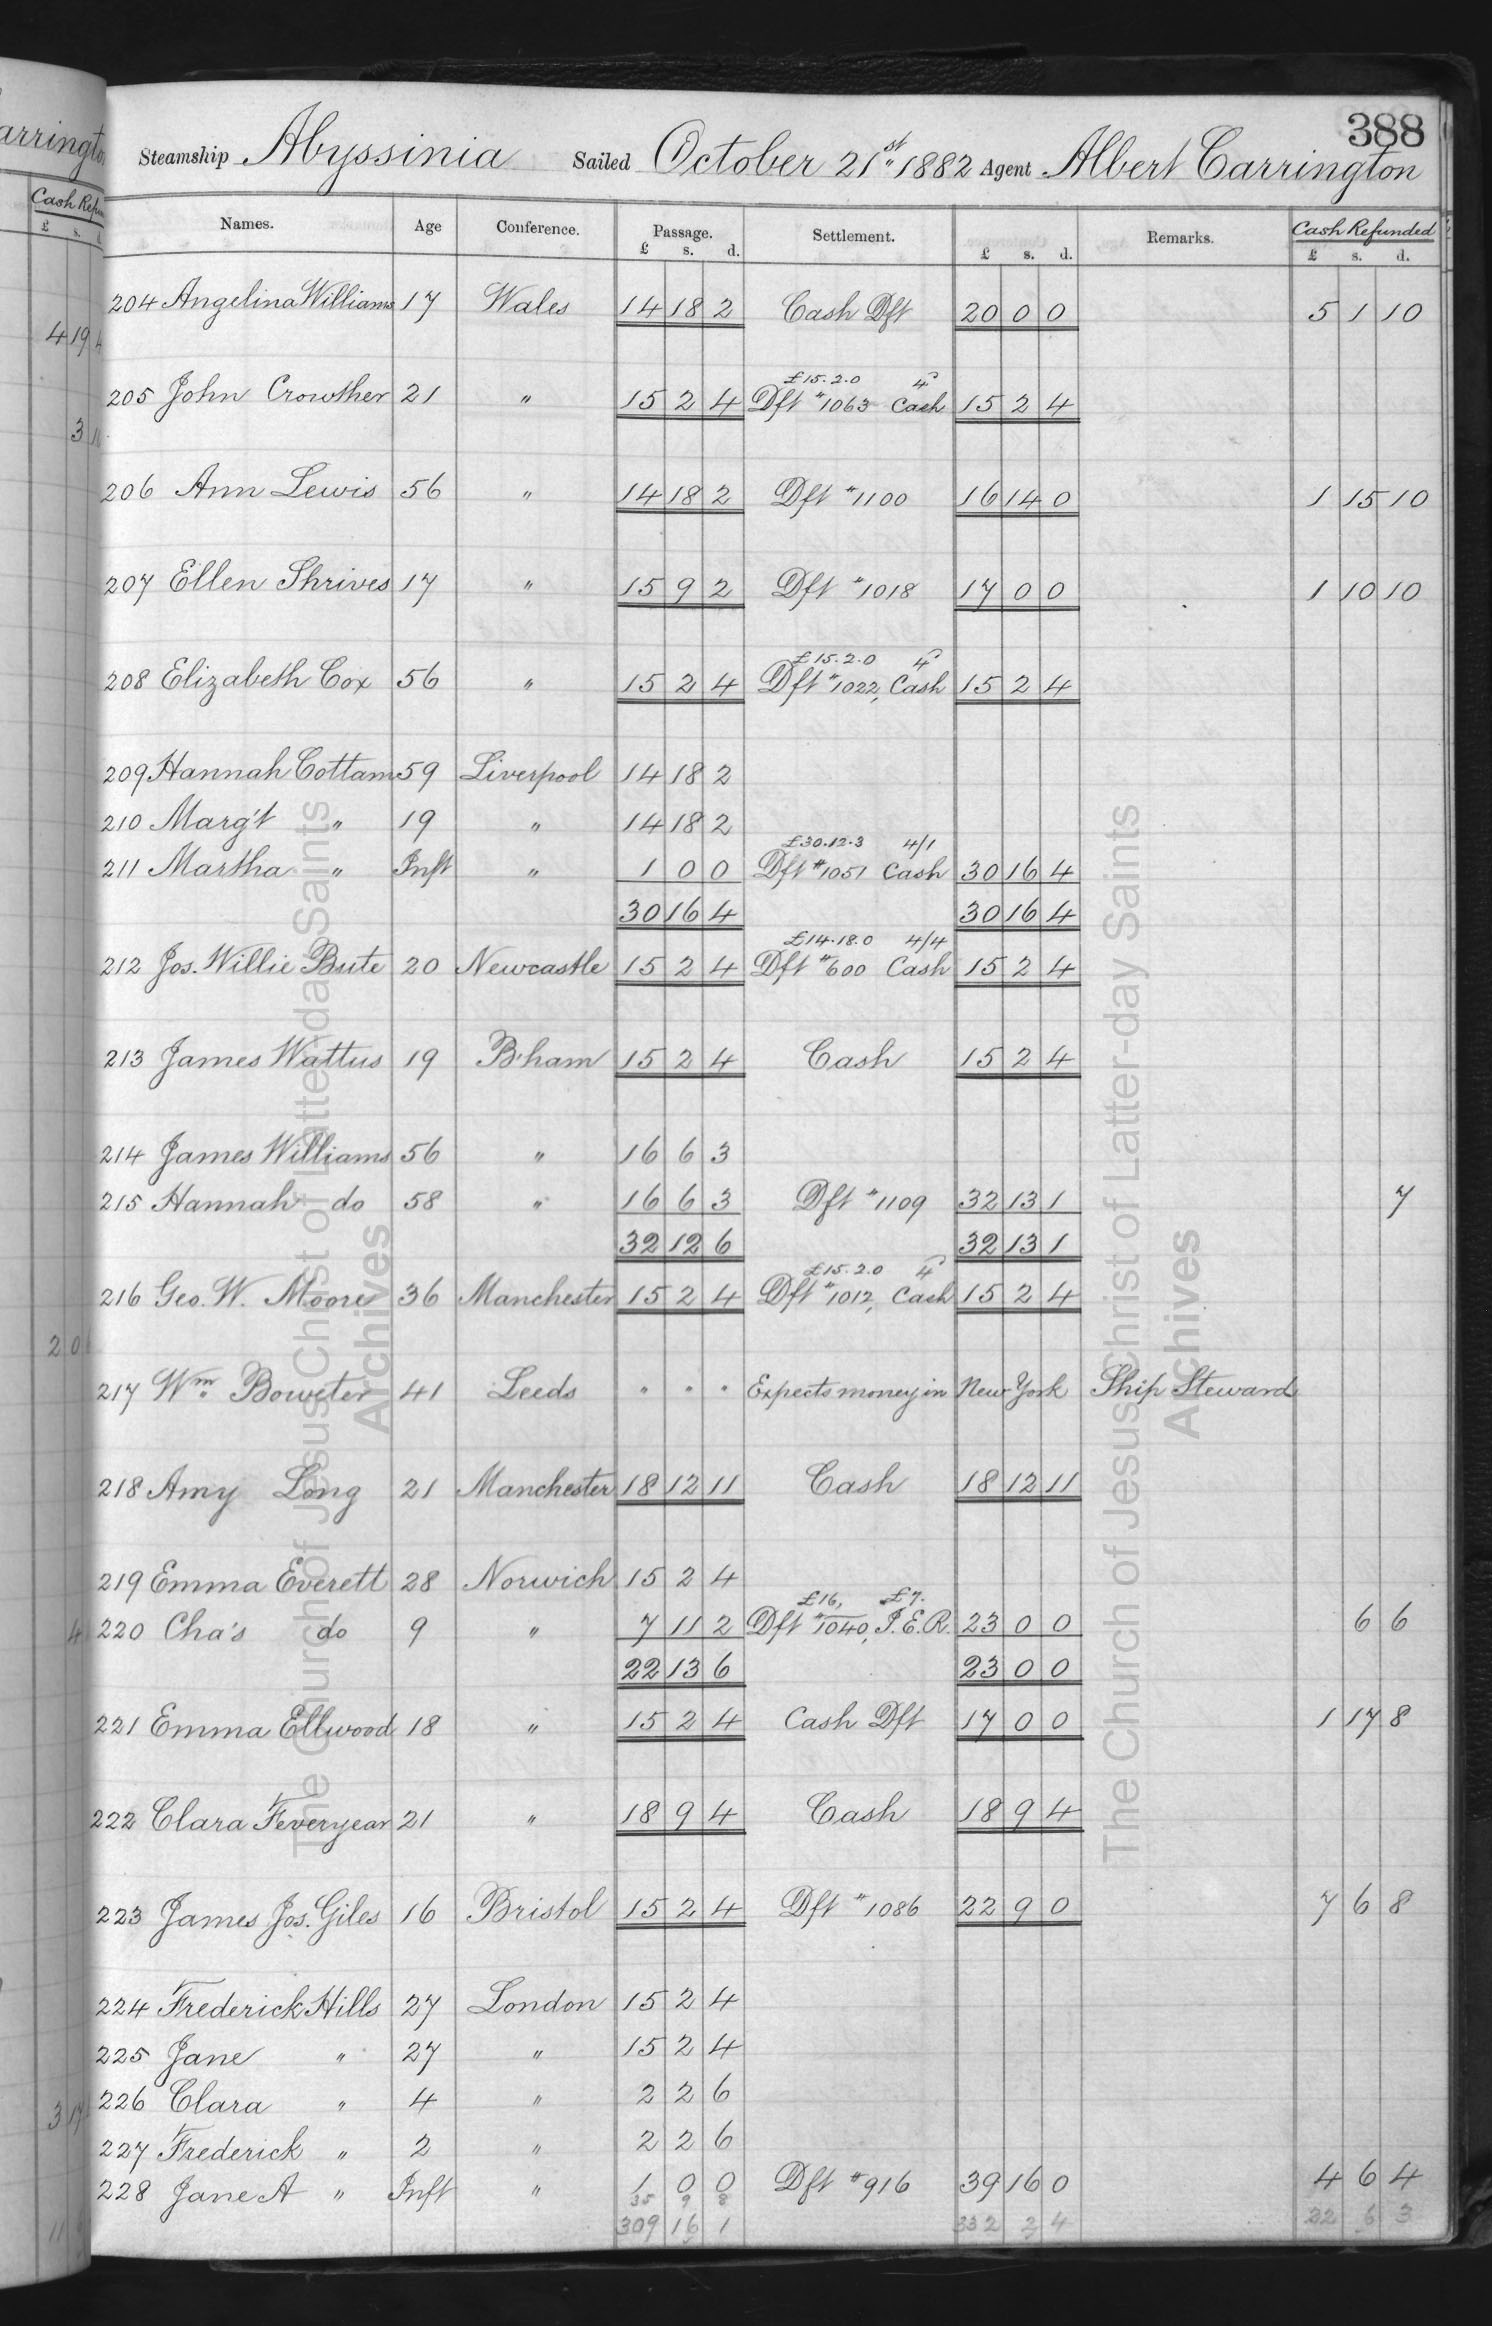 388
Steamship Abyssinia Sailed October 21st 1882 Agent Albert Carrington
Names. Age Conference. Passage. Settlement. Remarks. Cash Refunded
£ s. d. £ s. d. £ s. d.
204 Angelina Williams 17 Wales 14 18 2 Cash Dft 20 0 0 5 1 10
£15.2.0 4d
205 John Crowther 21 " 15 2 4 Dft #1063 Cash 15 2 4
206 Ann Lewis 56 " 14 18 2 Dft #1100 16 14 0 1 15 10
207 Ellen Shrives 17 " 15 9 2 Dft #1018 17 0 0 1 10 10
£15.2.0 4d
208 Elizabeth Cox 56 " 15 2 4 Dft #1022, Cash 15 2 4
209 Hannah Cottam 59 Liverpool 14 18 2
210 Marg't " 19 " 14 18 2
£30.12.3 4/1
211 Martha " Inft " 1 0 0 Dft #1051 Cash 30 16 4
30 16 4 30 16 4
£14.18.0 4/4
212 Jos. Willie Bute 20 Newcastle 15 2 4 Dft #600 Cash 15 2 4
213 James Wattus 19 B'ham 15 2 4 Cash 15 2 4
214 James Williams 56 " 16 6 3
215 Hannah do 58 " 16 6 3 Dft #1109 32 13 1 7
32 12 6 32 13 1
£15.2.0 4d
216 Geo. W. Moore 36 Manchester 15 2 4 Dft #1012, Cash 15 2 4
217 Wm. Boweter 41 Leeds " " " Expects money in New York Ship Steward
218 Amy Long 21 Manchester 18 12 11 Cash 18 12 11
219 Emma Everett 28 Norwich 15 2 4
£16, £7.
220 Cha's do 9 " 7 11 2 Dft #1040, I.E.R. 23 0 0 6 6
22 13 6 23 0 0
221 Emma Ellwood 18 " 15 2 4 Cash Dft 17 0 0 1 17 8
222 Clara Feveryear 21 " 18 9 4 Cash 18 9 4
223 James Jos. Giles 16 Bristol 15 2 4 Dft #1086 22 9 0 7 6 8
224 Frederick Hills 27 London 15 2 4
225 Jane " 27 " 15 2 4
226 Clara " 4 " 2 2 6
227 Frederick " 2 " 2 2 6
228 Jane A " Inft " 1 0 0 Dft #916 39 16 0 4 6 4
35 9 8
309 16 1 332 2 4 22 6 3
The Church of Jesus Christ of Latter-day Saints
Archives
The Church of Jesus Christ of Latter-day Saints
Archives